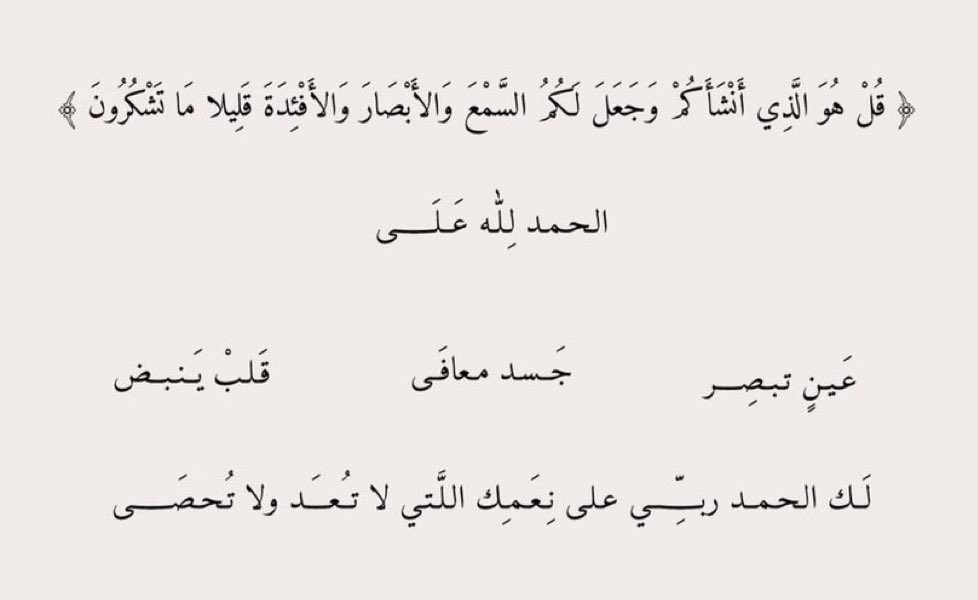 ﴿ قُلْ هُوَ الَّذِي أَنْشَأَكُمْ وَجَعَلَ لَكُمُ السَّمْعَ وَالأَبْصَارَ وَالأَفْئِدَةَ قَلِيلا مَا تَشْكُرُونَ ﴾
الحمد لِلّه عَـلَـــى
عَـينٍ تبـصِـــر جَـسد معافَـى قَـلبْ يَـنبـض
لَـك الحمـد ربـــِّــي على نِعَمِـك اللَّتي لا تـُعــَـد ولا تُحصَــــى